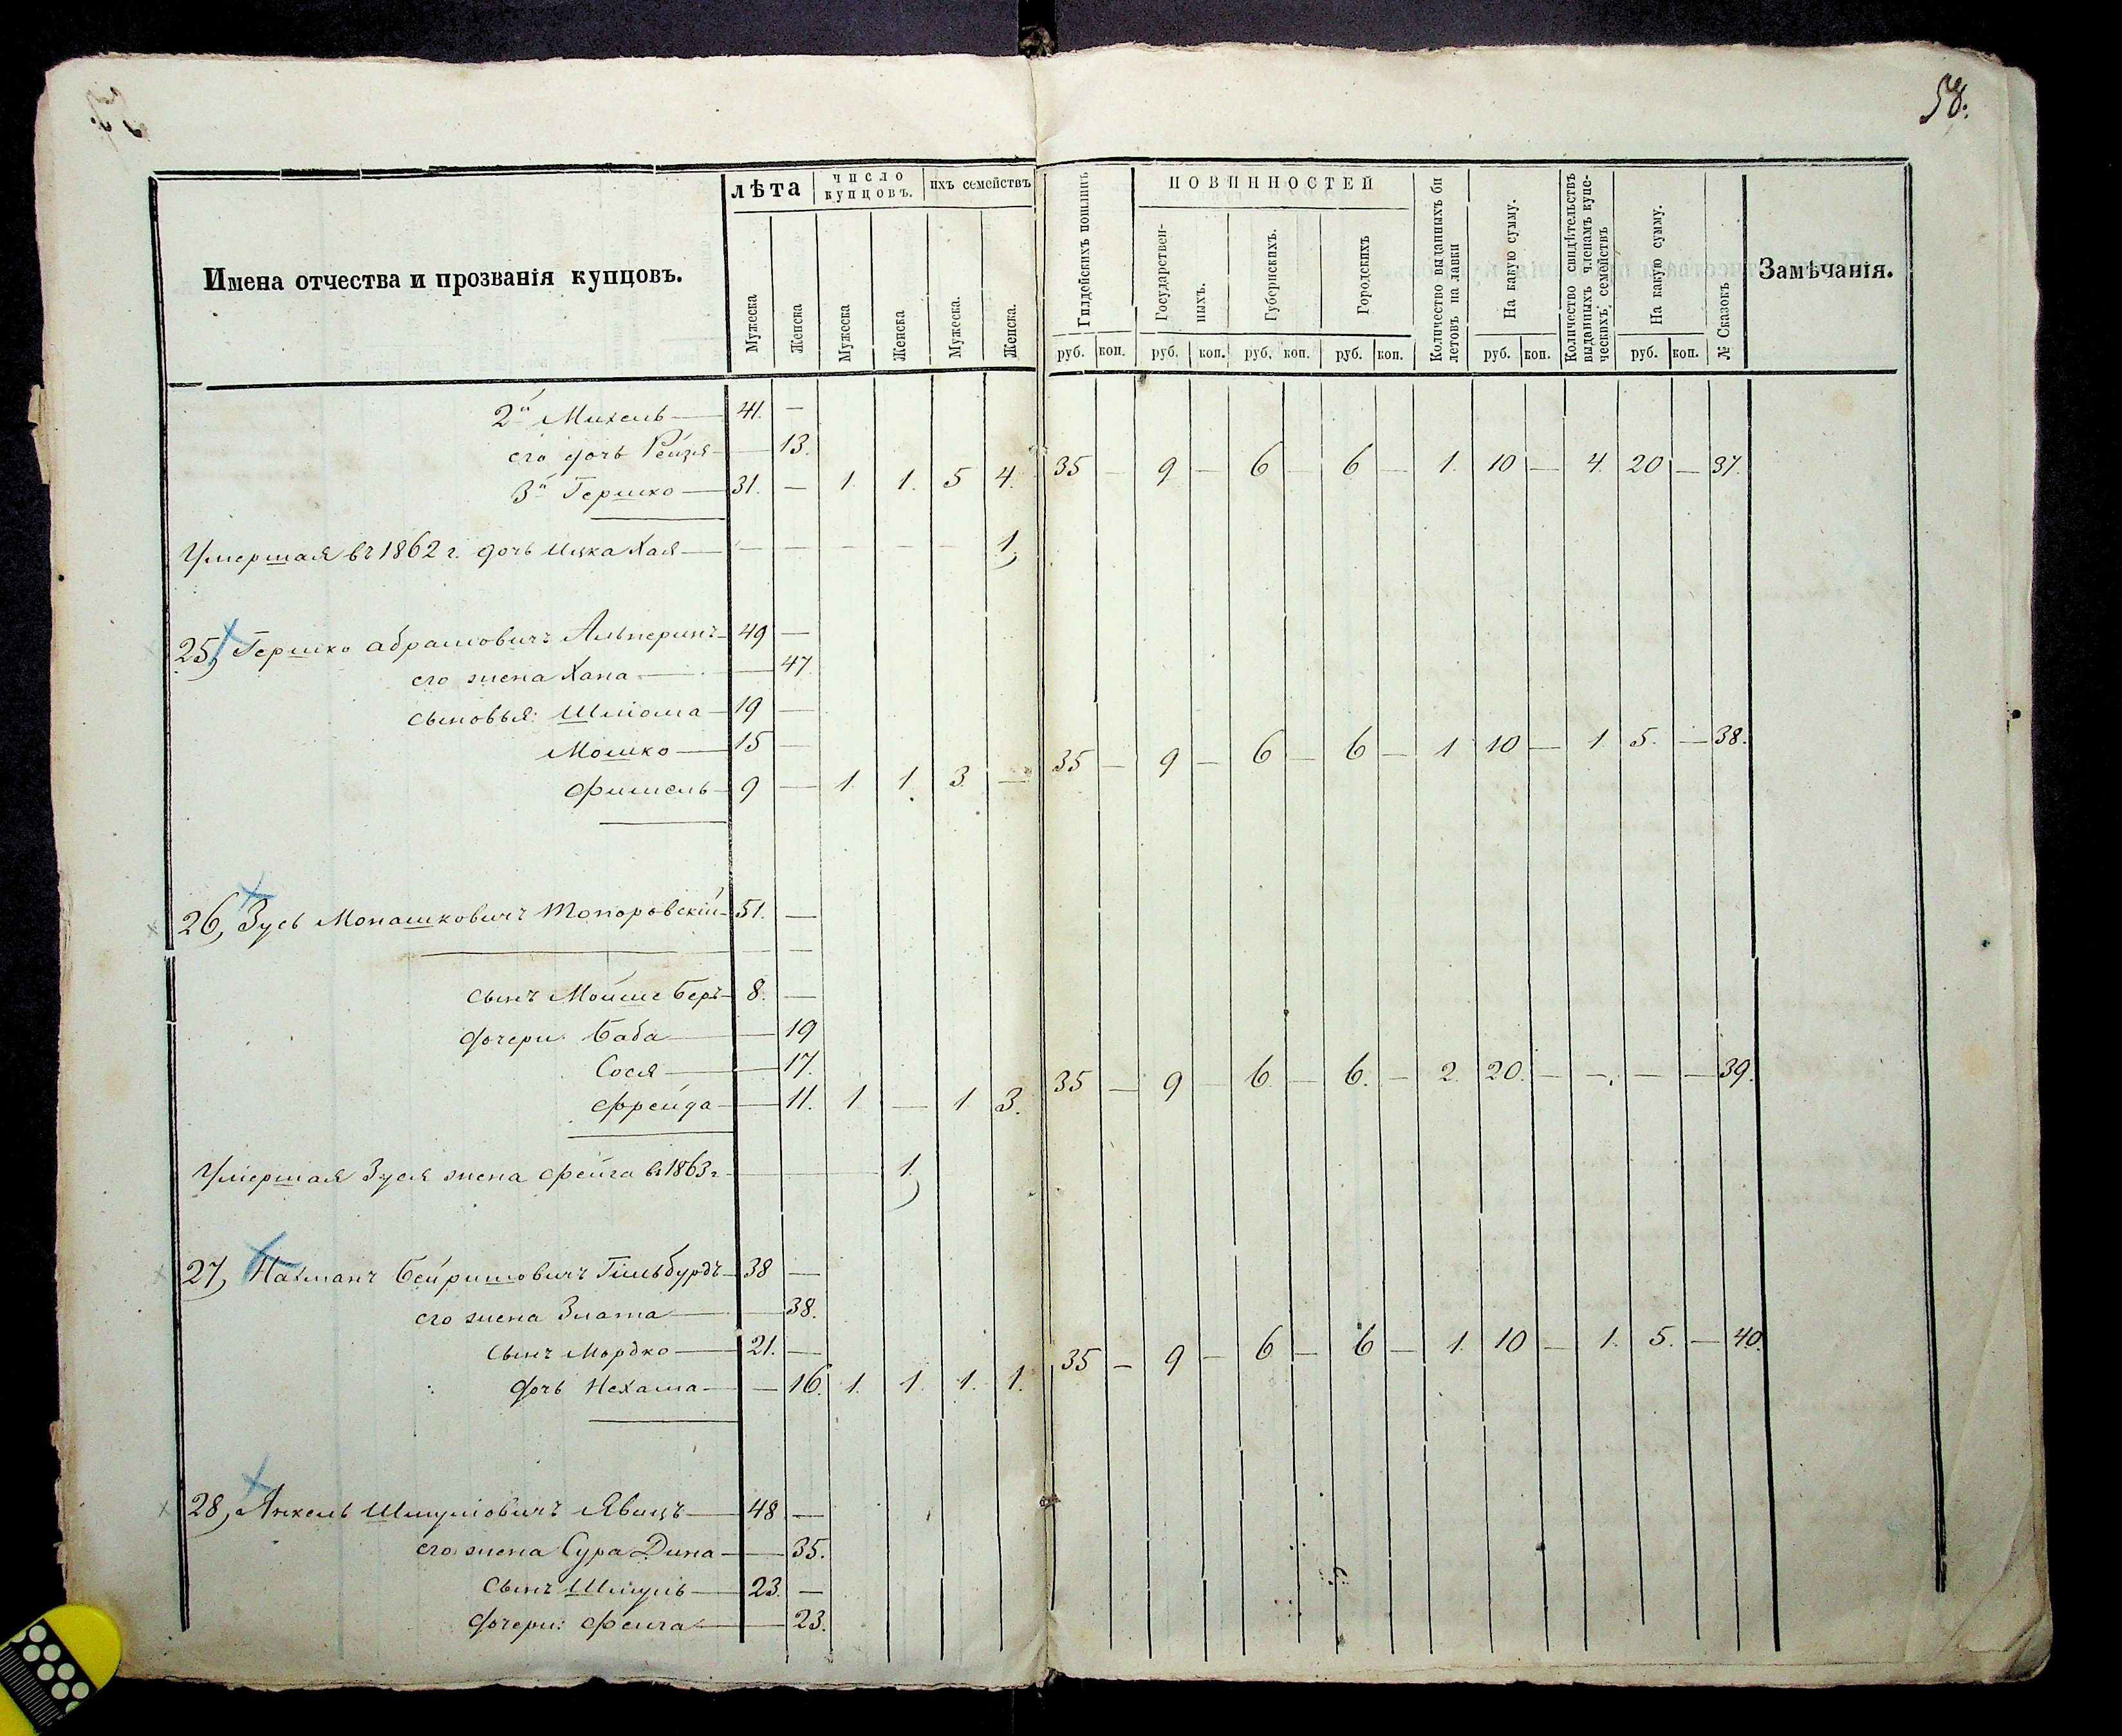 58.
Имена отчества и прозванія купцовъ.
лѣта
число купцовъ.
ихъ семействъ
Мужеска
Женска
Мужеска
Женска
Мужеска.
Женска.
Гилдейскихъ пошлинъ
ПОВИННОСТЕЙ
Государственныхъ.
Губернскихъ.
Городскихъ
Количество выданныхъ билетовъ на лавки
На какую сумму.
Количество свидѣтельствъ выданныхъ членамъ купеческихъ, семействъ
На какую сумму.
№ Сказокъ
Замѣчанія.
руб. коп. руб. коп. руб. коп. руб. коп. руб. коп. руб. коп.
2й Михель — 41. —
его дочь Рейзя — — 13.
3й Гершко — 31. — 1. 1. 5 4. 35 — 9 — 6 — 6 — 1. 10 — 4. 20 — 37.
Умершая въ 1862 г. дочь Ицка Хая — — — — — — 1,
25, Гершко Абрамовичъ Альперинъ — 49 —
его жена Хана — — 47
сыновья: Шліома — 19 —
Мошко — 15 —
Фишель — 9 — 1. 1. 3. — 35 — 9 — 6 — 6 — 1 10 — 1 5. — 38.
26, Зусь Монашковичъ Топоровскій — 51. —
сынъ Мойше Беръ — 8. —
дочери: Баба — — 19
Сося — — 17.
Фрейда — — 11. 1. — 1. 3. 35 — 9 — 6 — 6. — 2. 20. — — — — 39.
Умершая Зуся жена Фейга въ 1863 г. — — — — 1,
27, Нахманъ Бейришовичъ Гильбурдъ — 38 —
его жена Злата — — 38.
сынъ Мордко — 21. —
дочь Нехама — — 16. 1. 1. 1. 1. 35 — 9 — 6 — 6 — 1. 10 — 1. 5. — 40.
28, Янкель Шмуліовичъ Явицъ — 48 —
его жена Сура Дина — — 35.
сынъ Шмуль — 23. —
дочери: Фейга — — 23.